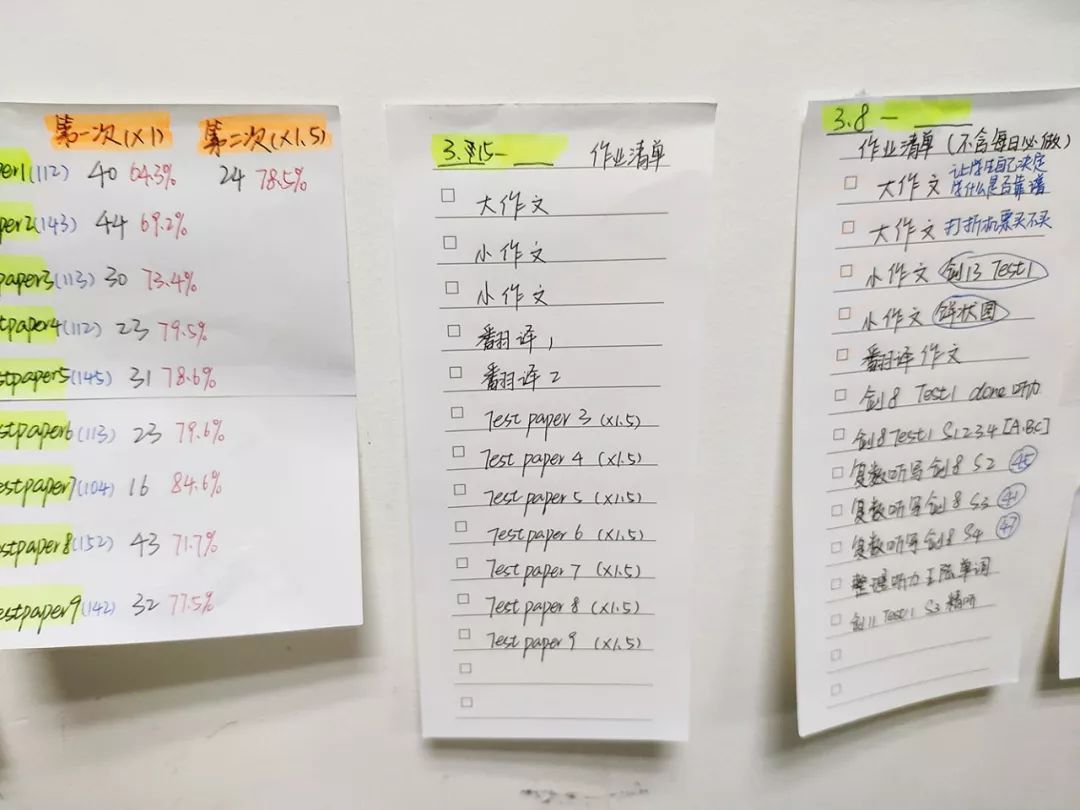 第一次(X1) 第二次(X1.5)
per1(112) 40 64.3% 24 78.5%
per2(143) 44 69.2%
paper3(113) 30 73.4%
tpaper4(112) 23 79.5%
stpaper5(145) 31 78.6%
stpaper6(113) 23 79.6%
estpaper7(104) 16 84.6%
estpaper8(152) 43 71.7%
estpaper9(142) 32 77.5%
3.15- 作业清单
大作文
小作文
小作文
翻译1
翻译2
Test paper 3 (X1.5)
Test paper 4 (X1.5)
Test paper 5 (X1.5)
Test paper 6 (X1.5)
Test paper 7 (X1.5)
Test paper 8 (X1.5)
Test paper 9 (X1.5)
3.8 -
作业清单(不含每日必做)
大作文 让学生自己决定
学什么是否靠谱
大作文 打折机票买不买
小作文 剑13 Test1
小作文 饼状图
翻译作文
剑8 Test1 done 听力
剑8 Test1 S1234 [A.BC]
复数听写剑8 S2 45
复数听写剑8 S3
复数听写剑8 S4 47
整理听力 单词
剑11 Test1 S3 精听